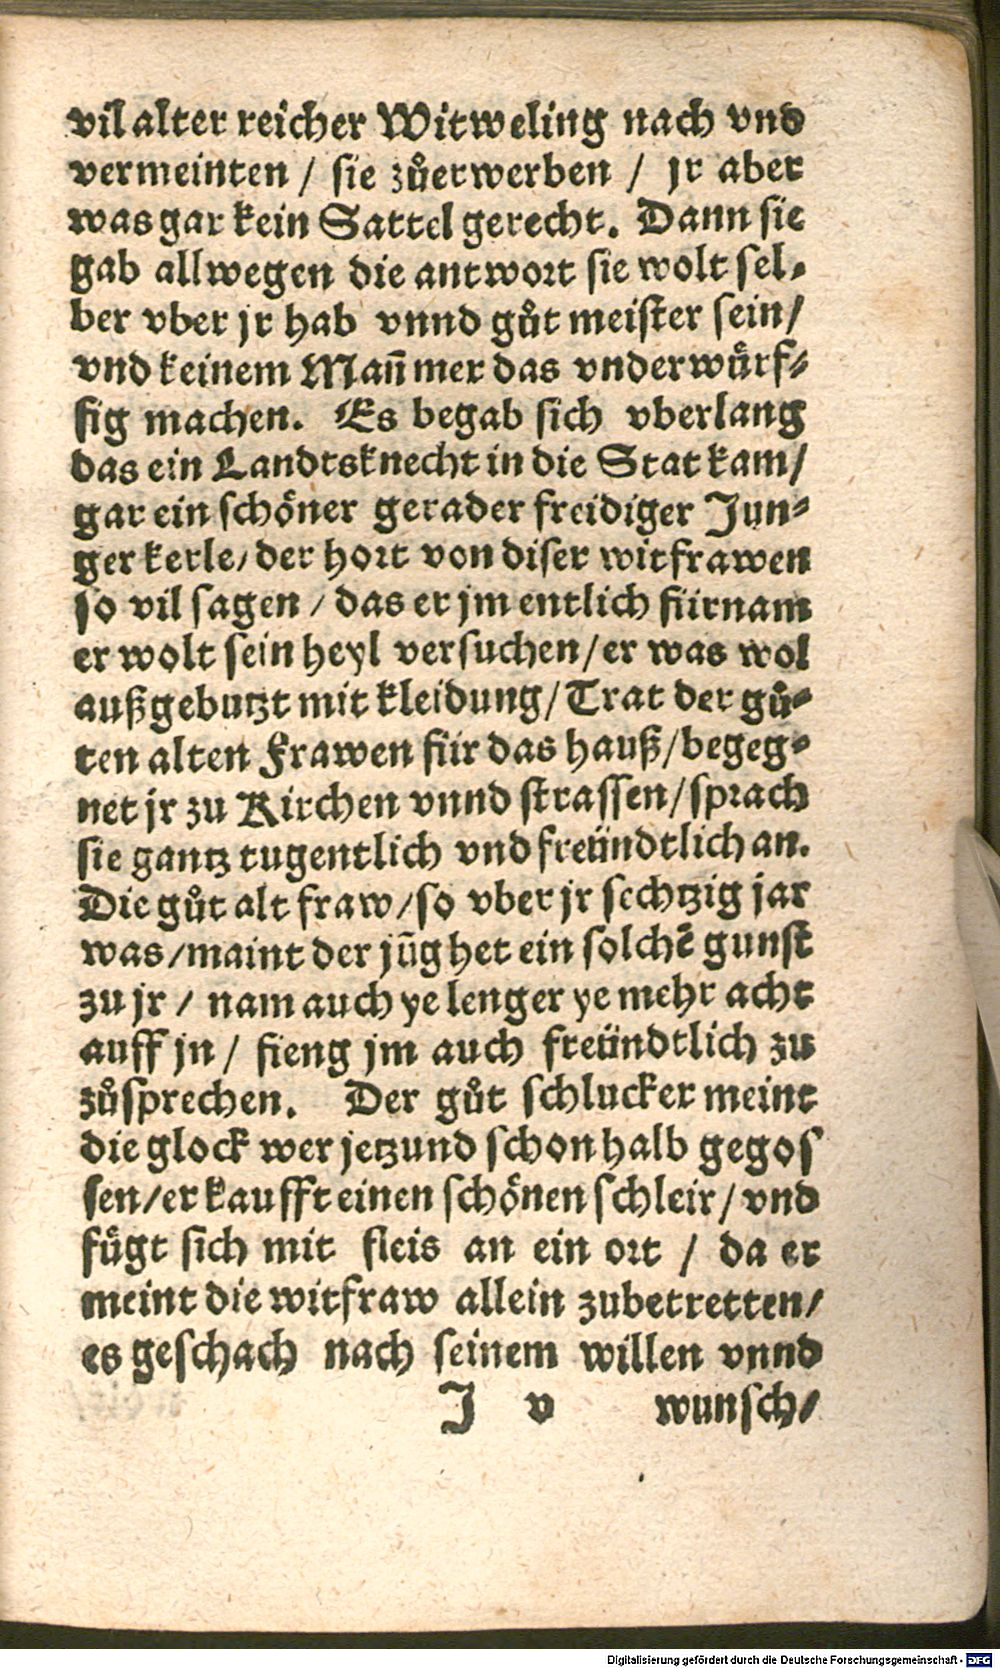 vil alter reicher Witweling nach vnd
vermeinten / sie zůerwerben / jr aber
was gar kein Sattel gerecht. Dann sie
gab allwegen die antwort sie wolt sel-
ber vber jr hab vnnd gůt meister sein /
vnd keinem Mañ mer das vnderwürf-
fig machen. Es begab sich vberlang
das ein Landtsknecht in die Stat kam /
gar ein schöner gerader freidiger Jun-
ger kerle / der hort von diser witfrawen
so vil sagen / das er jm entlich fürnam
er wolt sein heyl versuchen / er was wol
außgebutzt mit kleidung / Trat der gů-
ten alten Frawen für das hauß / begeg-
net jr zu Kirchen vnnd strassen / sprach
sie gantz tugentlich vnd freündtlich an.
Die gůt alt fraw / so vber jr sechtzig jar
was / maint der jūg het ein solchē gunst
zu jr / nam auch ye lenger ye mehr acht
auff jn / fieng jm auch freündtlich zu
zůsprechen. Der gůt schlucker meint
die glock wer jetzund schon halb gegos
sen / er kaufft einen schönen schleir / vnd
fügt sich mit fleis an ein ort / da er
meint die witfraw allein zubetretten /
es geschach nach seinem willen vnnd
J v wunsch /
Digitalisierung gefördert durch die Deutsche Forschungsgemeinschaft - DFG